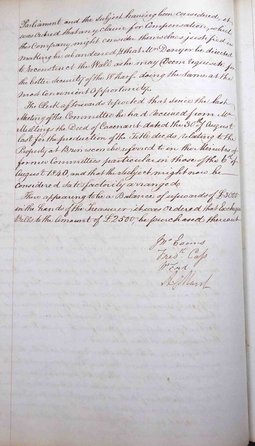 Parliament and the subject having been considered, it
was ordered that any Claim for Compensation, which
the Company might consider themselves justified
making be abandoned & that Mr Danger be directed
to reconstruct the Wall as he may deem requisite for
the better security of the Wharf doing the same at the
most Convenient Opportunity.
The Clerk of Stewards reported that since the last
Meeting of the Committee he had received from Mr
the Deed of Covenant dated the 30th August
last for the production of the Title deeds, relating to the
Property at Brunscombe referred to in the Minutes of
former Committees particular in those of the 6th of
August 1850, and that the subject might now be
considered satisfactorily arranged.
There appearing to be a Balance of upwards of £3000
in the hands of the Treasurer it was Ordered that Exchequer
Bills to the Amount of £2500 be purchased thereout.
Fredk Capp